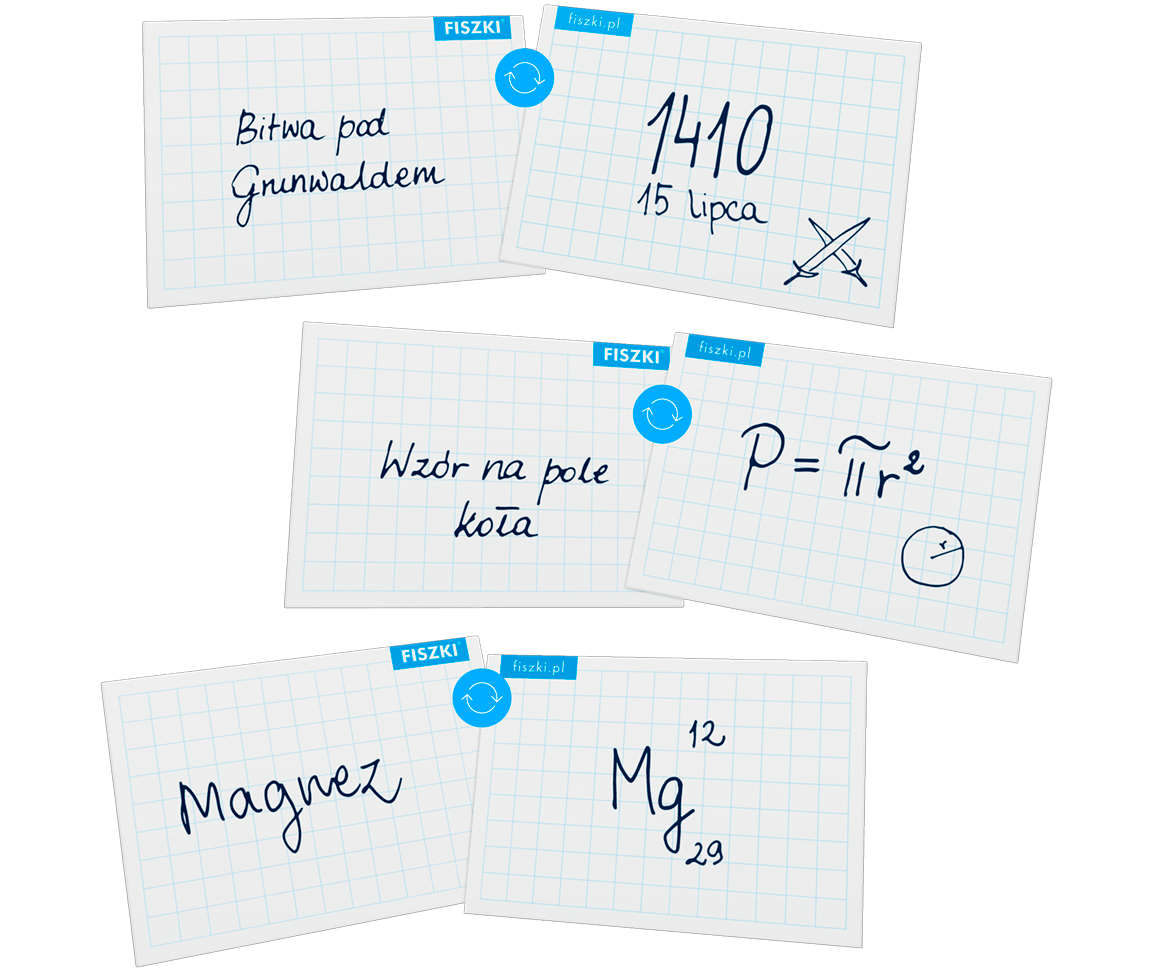 FISZKI
Bitwa pod
Grunwaldem
fiszki.pl
1410
15 lipca
FISZKI
Wzór na pole
koła
fiszki.pl
P = πr²
r
FISZKI
Magnez
fiszki.pl
12
Mg
29